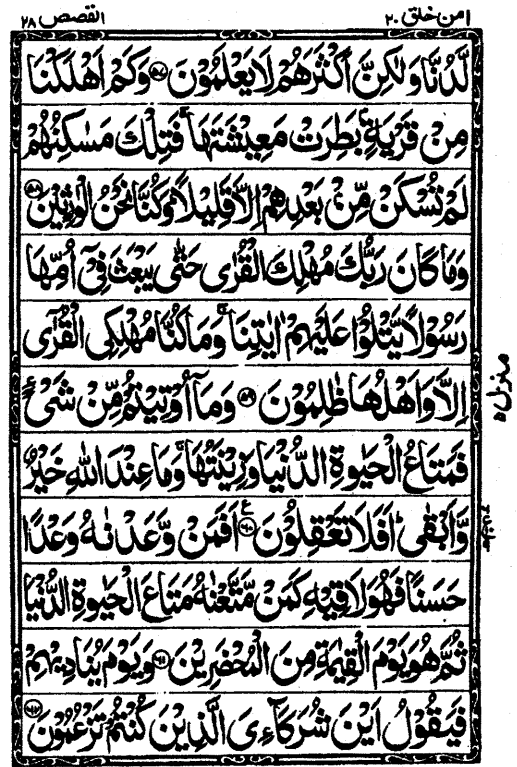 امن خلق ٢٠
القصص ٢٨
لَّدُنَّا وَلٰكِنَّ اَكْثَرَهُمْ لَا يَعْلَمُوْنَ ﴿٥٧﴾ وَكَمْ اَهْلَكْنَا
مِنْ قَرْيَةٍۭ بَطِرَتْ مَعِيْشَتَهَا ۚ فَتِلْكَ مَسٰكِنُهُمْ
لَمْ تُسْكَنْ مِّنْۢ بَعْدِهِمْ اِلَّا قَلِيْلًا ؕ وَكُنَّا نَحْنُ الْوٰرِثِيْنَ ﴿٥٨﴾
وَمَا كَانَ رَبُّكَ مُهْلِكَ الْقُرٰى حَتّٰى يَبْعَثَ فِيْۤ اُمِّهَا
رَسُوْلًا يَّتْلُوْا عَلَيْهِمْ اٰيٰتِنَا ۚ وَمَا كُنَّا مُهْلِكِى الْقُرٰٓى
اِلَّا وَاَهْلُهَا ظٰلِمُوْنَ ﴿٥٩﴾ وَمَاۤ اُوْتِيْتُمْ مِّنْ شَىْءٍ
فَمَتَاعُ الْحَيٰوةِ الدُّنْيَا وَزِيْنَتُهَا ۚ وَمَا عِنْدَ اللّٰهِ خَيْرٌ
وَّاَبْقٰى ؕ اَفَلَا تَعْقِلُوْنَ ﴿٦٠﴾ ع اَفَمَنْ وَّعَدْنٰهُ وَعْدًا
حَسَنًا فَهُوَ لَاقِيْهِ كَمَنْ مَّتَّعْنٰهُ مَتَاعَ الْحَيٰوةِ الدُّنْيَا
ثُمَّ هُوَ يَوْمَ الْقِيٰمَةِ مِنَ الْمُحْضَرِيْنَ ﴿٦١﴾ وَيَوْمَ يُنَادِيْهِمْ
فَيَقُوْلُ اَيْنَ شُرَكَآءِىَ الَّذِيْنَ كُنْتُمْ تَزْعُمُوْنَ ﴿٦٢﴾
منزل ٥